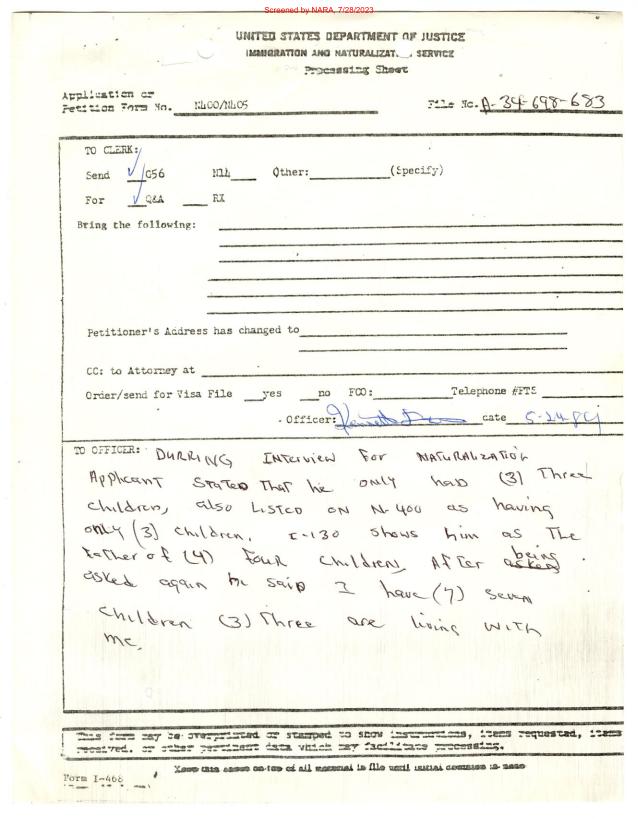 Screened by NARA, 7/28/2023
UNITED STATES DEPARTMENT OF JUSTICE
IMMIGRATION AND NATURALIZAT SERVICE
Processing Sheet
Application or
Petition Form No. N400/N405 File No. A-34-698-683
TO CLERK:
Send ✓ G56 N14 Other: (Specify)
For ✓ Q&A RX
Bring the following:
Petitioner's Address has changed to
CC: to Attorney at
Order/send for Visa File yes no FCO: Telephone #FTS
Officer: Kenneth date 5-24-89
TO OFFICER: DURRING INterview For NATURALIZATION
Applicant Stated That he only had (3) Three
children, also Listed ON N-400 as having
only (3) children. I-130 shows him as The
Father of (4) Four children. After being
asked
asked again he said I have (7) seven
children (3) Three are living with
me.
This form may be overprinted or stamped to show instructions, items requested, items
received, or other pertinent data which may facilitate processing.
Keep this sheet on top of all material in file until initial decision is made
Form I-468